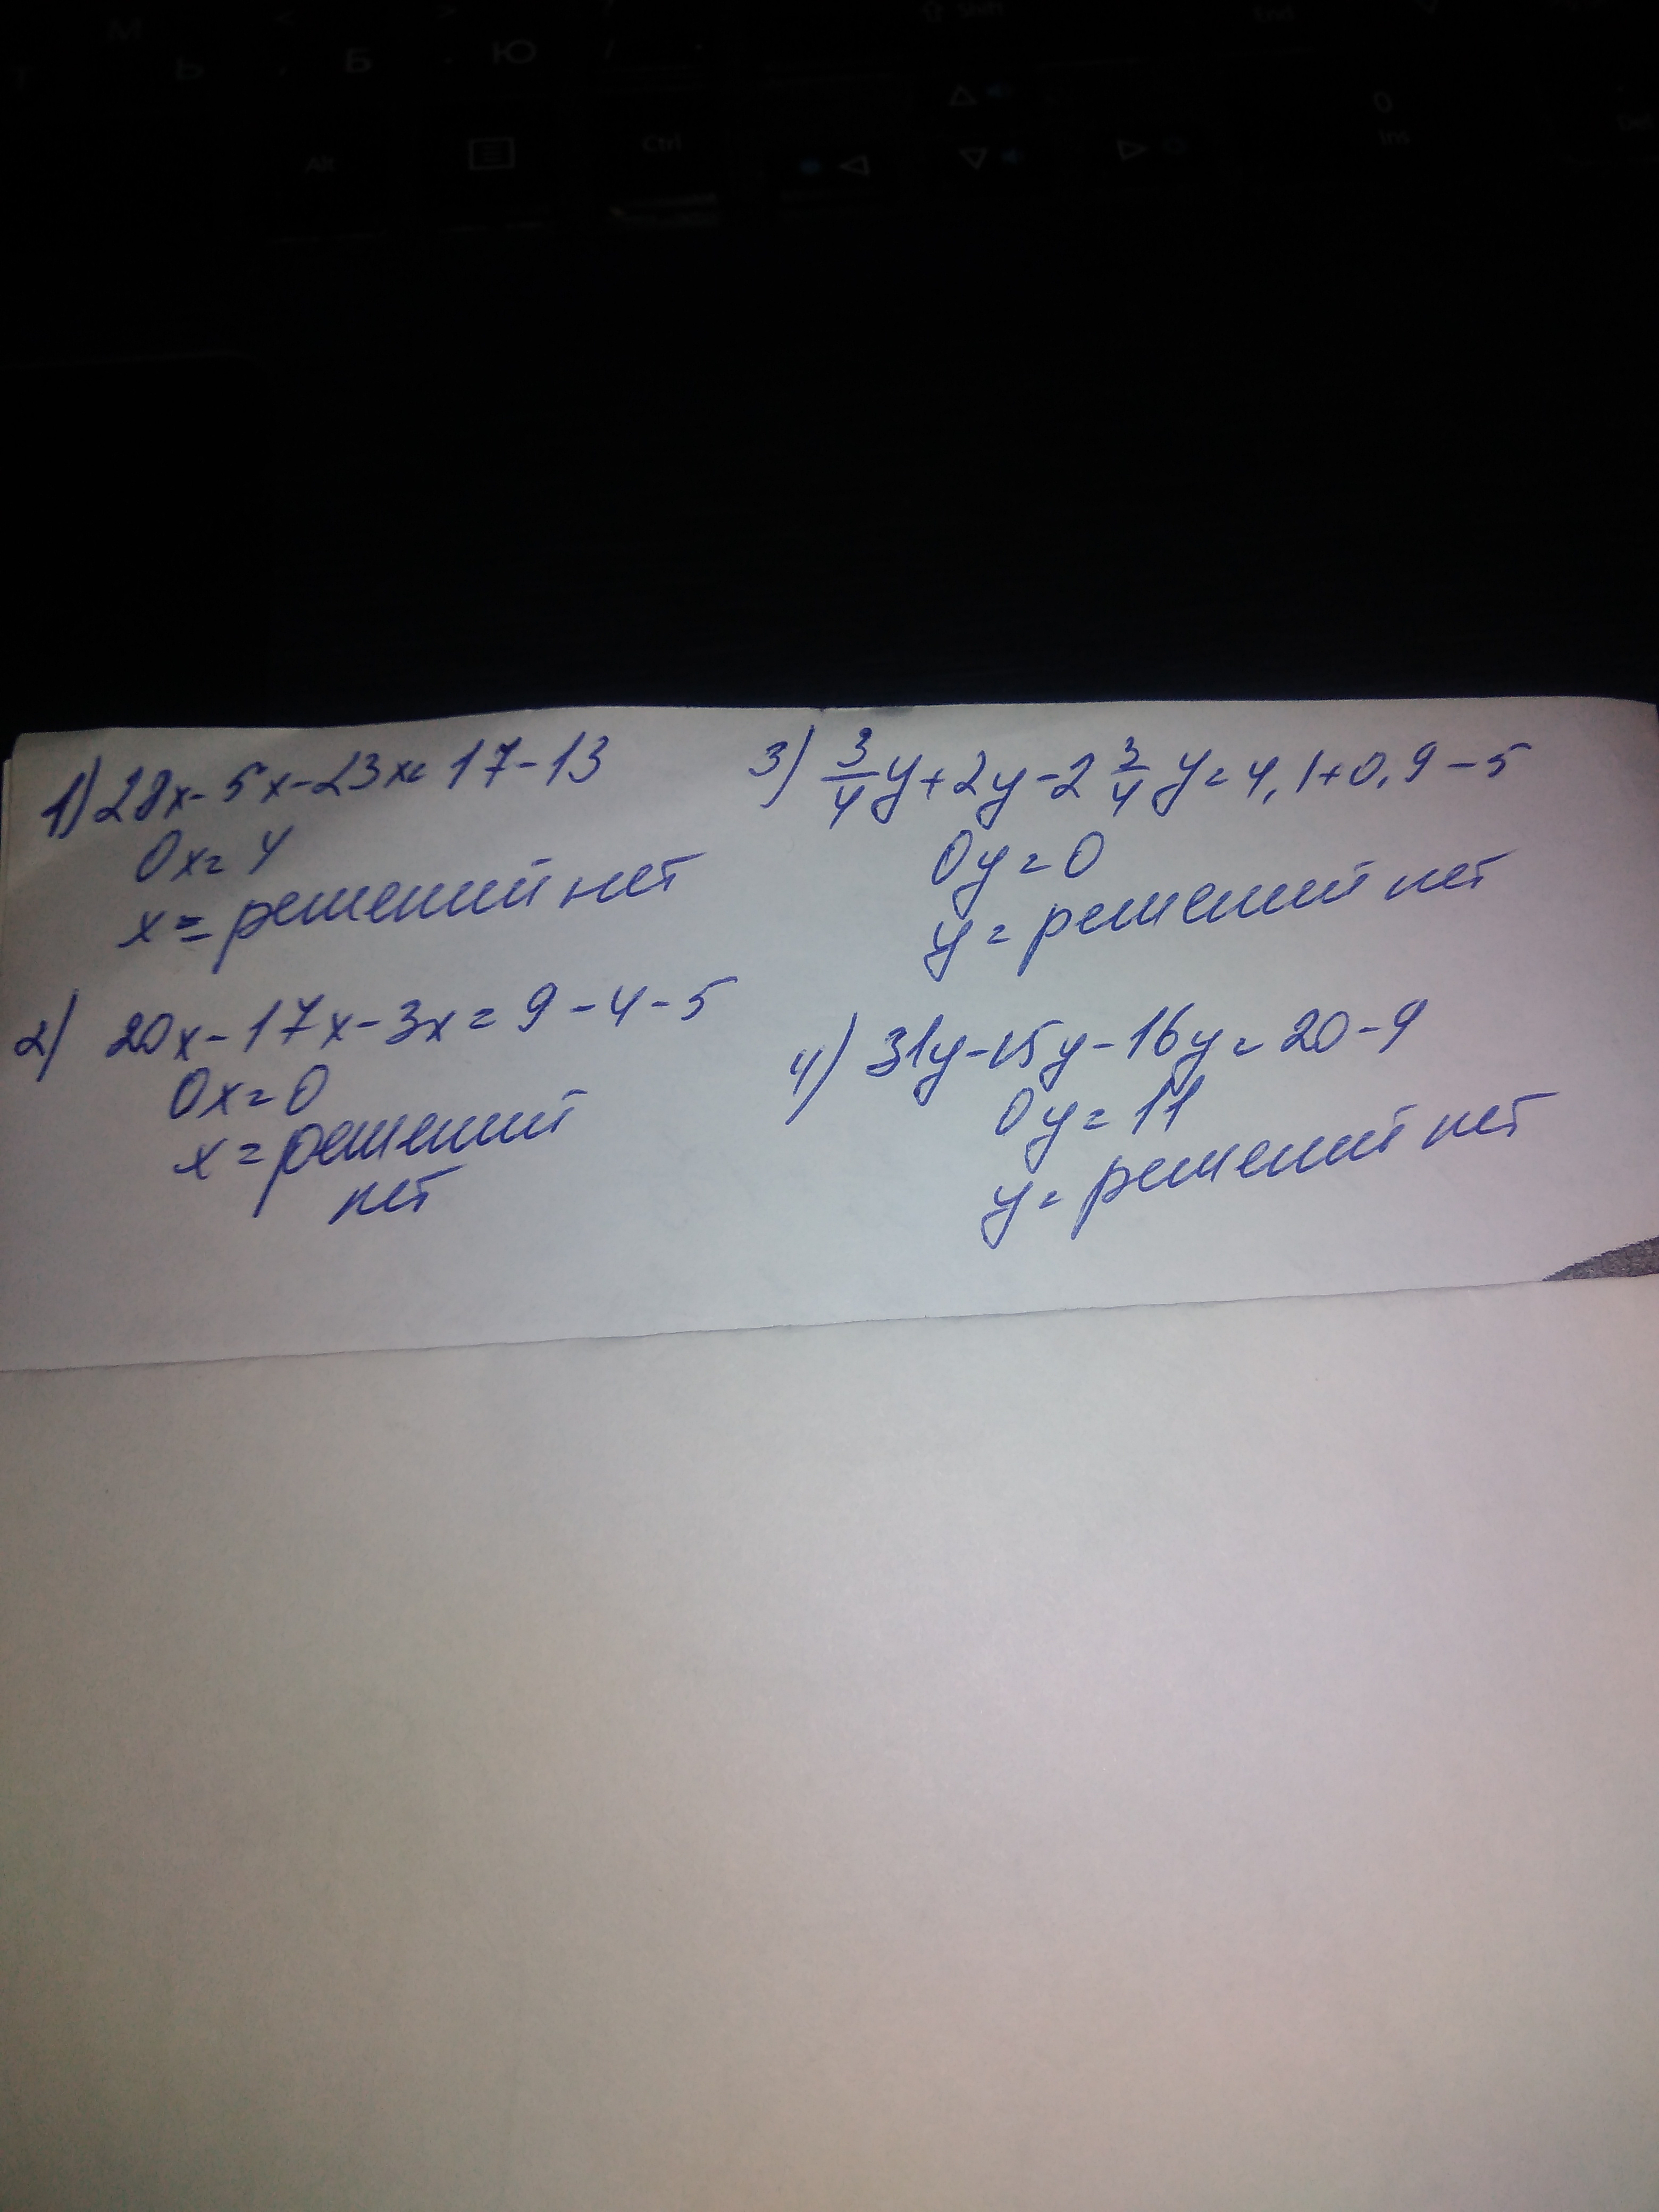 М < > / ⇧ Shift End
Ь Б . Ю
Alt Ctrl 0
Ins
1) 28x-5x-23x=17-13
0x=4
x=решений нет
2) 20x-17x-3x=9-4-5
0x=0
x=решений
нет
3) 3/4y+2y-2 3/4y=4,1+0,9-5
0y=0
y=решений нет
4) 31y-15y-16y=20-9
0y=11
y=решений нет